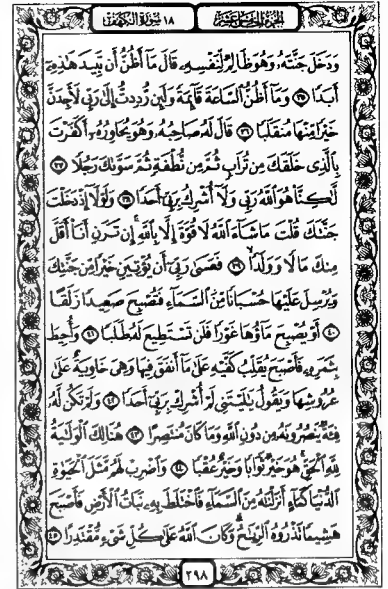 الجزء الخامس عشر ١٨ سورة الكهف
وَدَخَلَ جَنَّتَهُ وَهُوَ ظَالِمٌ لِّنَفْسِهِ قَالَ مَا أَظُنُّ أَن تَبِيدَ هَٰذِهِ
أَبَدًا ٣٥ وَمَا أَظُنُّ السَّاعَةَ قَائِمَةً وَلَئِن رُّدِدتُّ إِلَىٰ رَبِّي لَأَجِدَنَّ
خَيْرًا مِّنْهَا مُنقَلَبًا ٣٦ قَالَ لَهُ صَاحِبُهُ وَهُوَ يُحَاوِرُهُ أَكَفَرْتَ
بِالَّذِي خَلَقَكَ مِن تُرَابٍ ثُمَّ مِن نُّطْفَةٍ ثُمَّ سَوَّاكَ رَجُلًا ٣٧
لَّٰكِنَّا هُوَ اللَّهُ رَبِّي وَلَا أُشْرِكُ بِرَبِّي أَحَدًا ٣٨ وَلَوْلَا إِذْ دَخَلْتَ
جَنَّتَكَ قُلْتَ مَا شَاءَ اللَّهُ لَا قُوَّةَ إِلَّا بِاللَّهِ إِن تَرَنِ أَنَا أَقَلَّ
مِنكَ مَالًا وَوَلَدًا ٣٩ فَعَسَىٰ رَبِّي أَن يُؤْتِيَنِ خَيْرًا مِّن جَنَّتِكَ
وَيُرْسِلَ عَلَيْهَا حُسْبَانًا مِّنَ السَّمَاءِ فَتُصْبِحَ صَعِيدًا زَلَقًا
٤٠ أَوْ يُصْبِحَ مَاؤُهَا غَوْرًا فَلَن تَسْتَطِيعَ لَهُ طَلَبًا ٤١ وَأُحِيطَ
بِثَمَرِهِ فَأَصْبَحَ يُقَلِّبُ كَفَّيْهِ عَلَىٰ مَا أَنفَقَ فِيهَا وَهِيَ خَاوِيَةٌ عَلَىٰ
عُرُوشِهَا وَيَقُولُ يَا لَيْتَنِي لَمْ أُشْرِكْ بِرَبِّي أَحَدًا ٤٢ وَلَمْ تَكُن لَّهُ
فِئَةٌ يَنصُرُونَهُ مِن دُونِ اللَّهِ وَمَا كَانَ مُنتَصِرًا ٤٣ هُنَالِكَ الْوَلَايَةُ
لِلَّهِ الْحَقِّ هُوَ خَيْرٌ ثَوَابًا وَخَيْرٌ عُقْبًا ٤٤ وَاضْرِبْ لَهُم مَّثَلَ الْحَيَوٰةِ
الدُّنْيَا كَمَاءٍ أَنزَلْنَاهُ مِنَ السَّمَاءِ فَاخْتَلَطَ بِهِ نَبَاتُ الْأَرْضِ فَأَصْبَحَ
هَشِيمًا تَذْرُوهُ الرِّيَاحُ وَكَانَ اللَّهُ عَلَىٰ كُلِّ شَيْءٍ مُّقْتَدِرًا ٤٥
٢٩٨